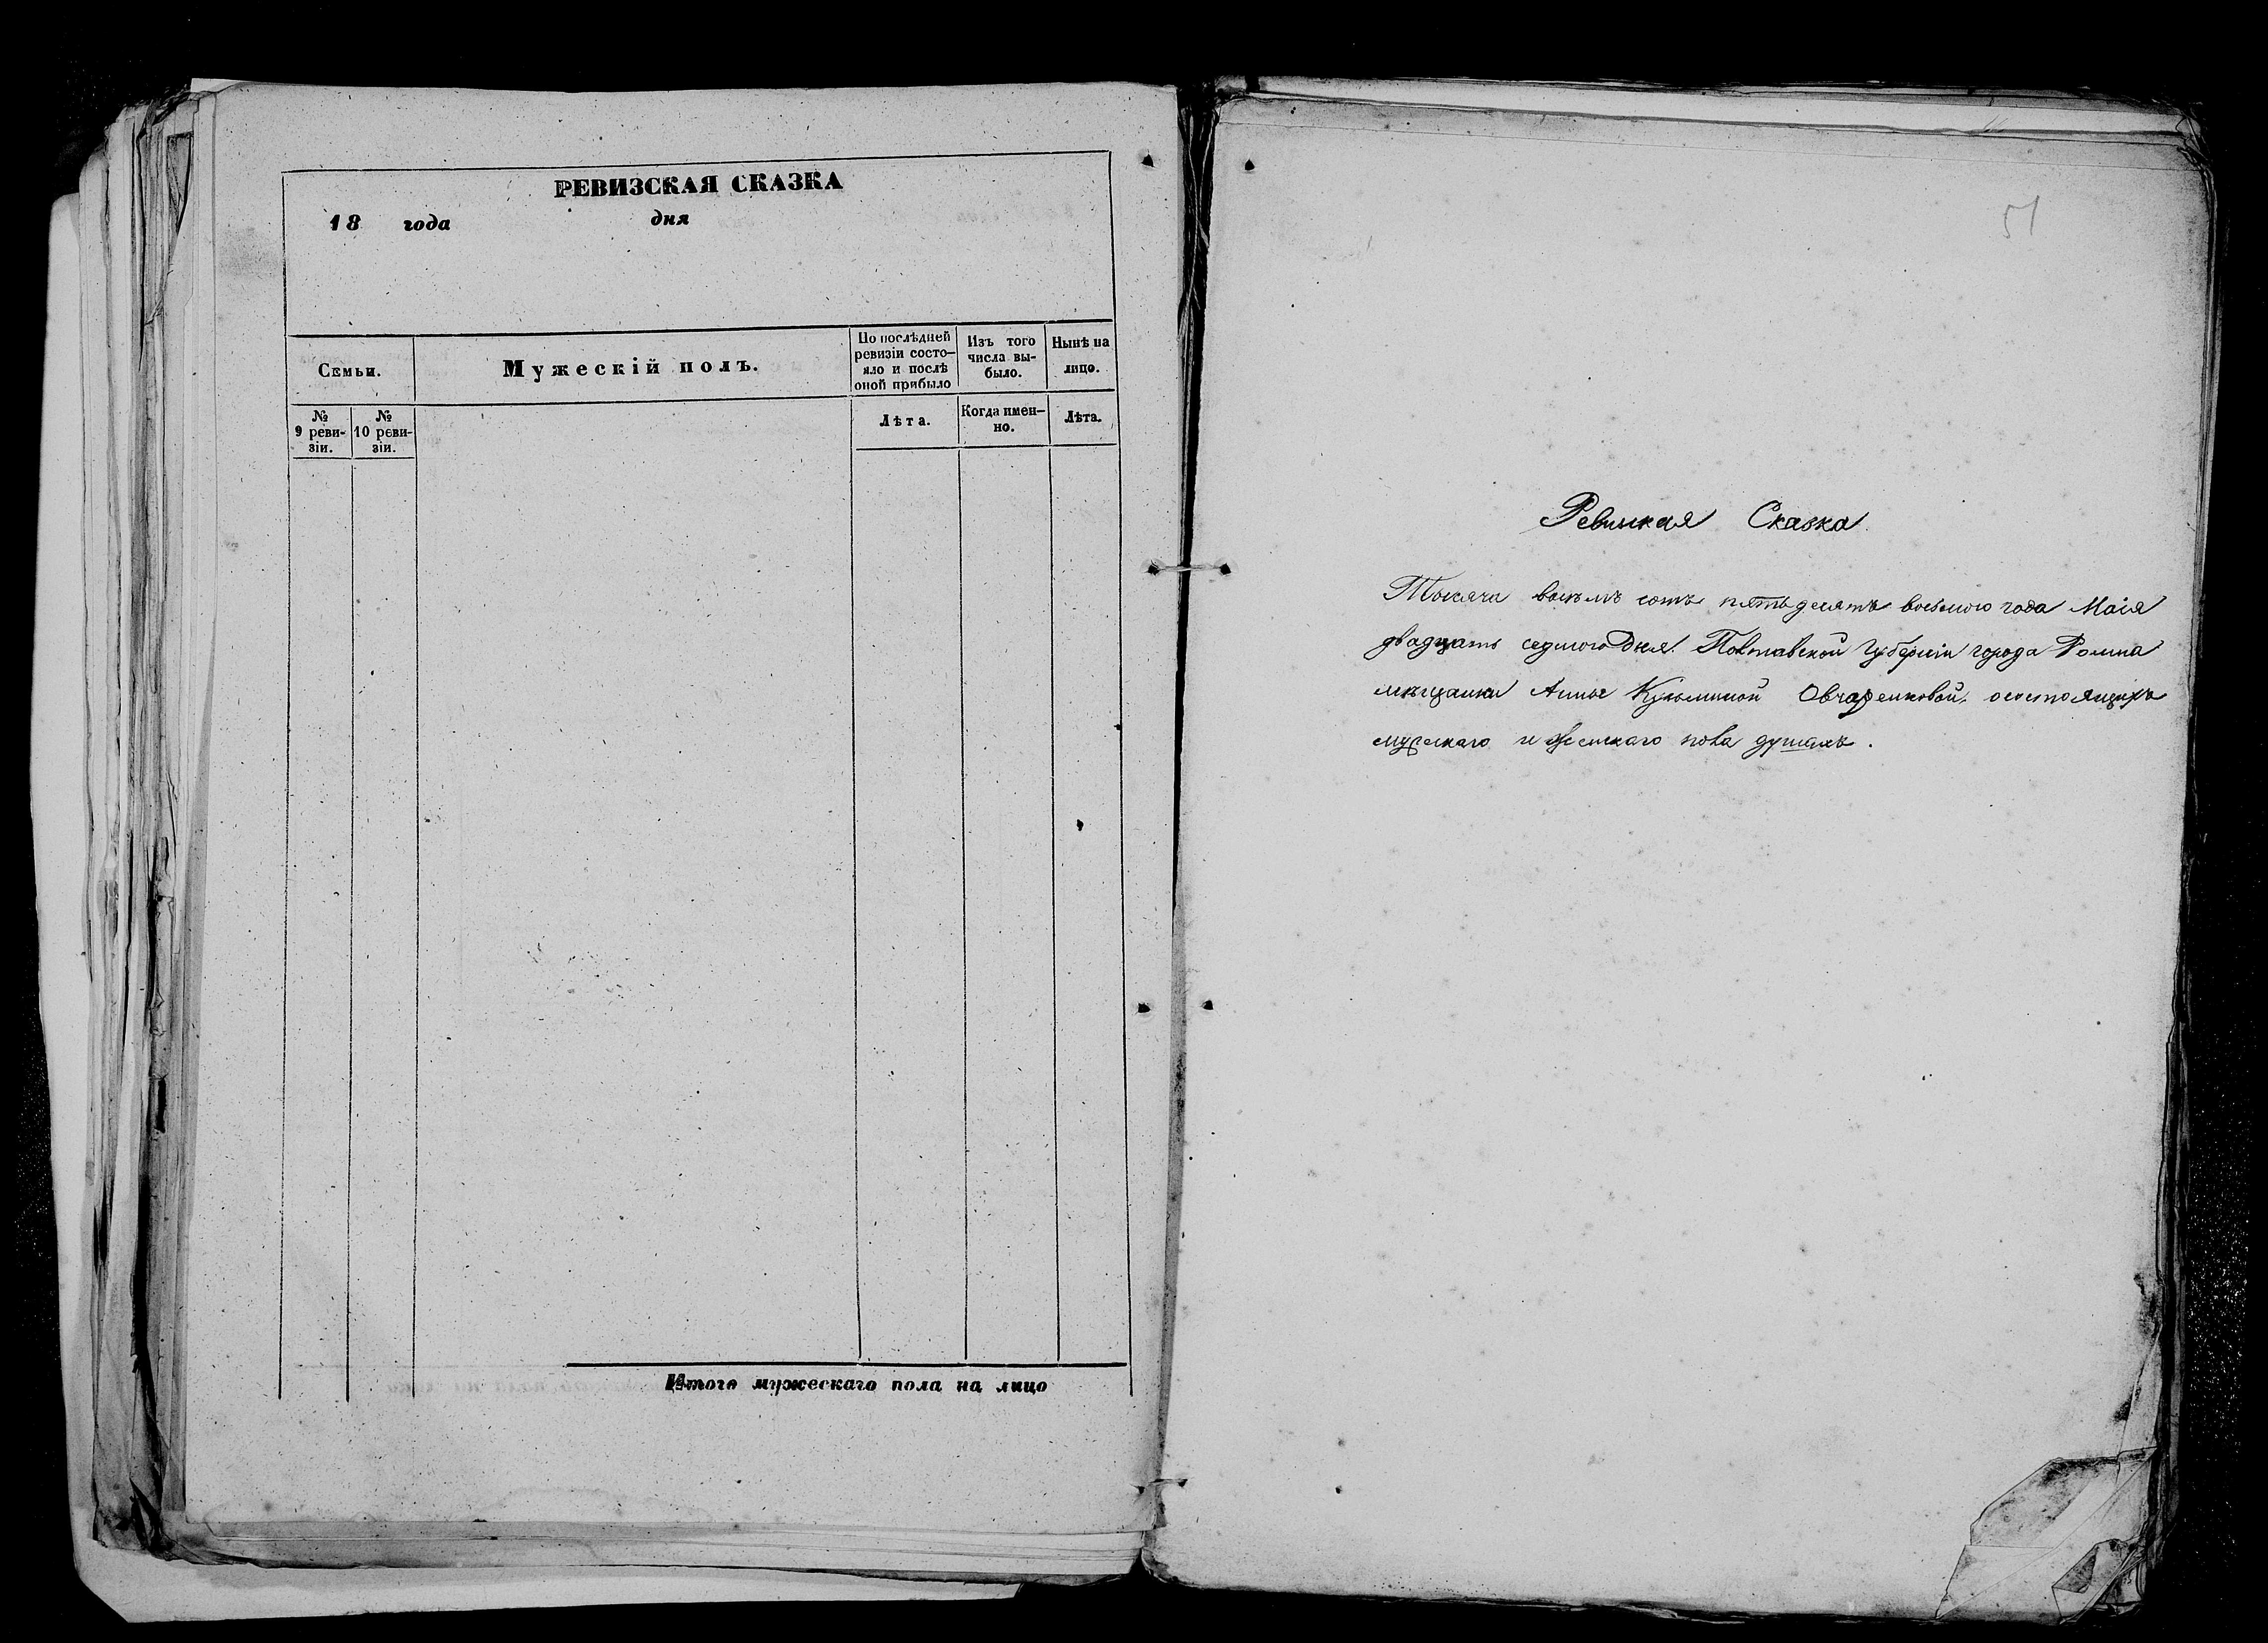 РЕВИЗСКАЯ СКАЗКА
18 года дня
Семьи.
Мужескій полъ.
По послѣдней ревизіи состо-
яло и послѣ
оной прибыло
Изъ того
числа вы-
было.
Нынѣ на
лицо.
№
9 реви-
зіи.
№
10 реви-
зіи.
Лѣта.
Когда имен-
но.
Лѣта.
Итого мужескаго пола на лицо
51
Ревиская Сказка.
Тысяча восемъ сотъ пятьдесятъ восьмого года Маія
двадцать седмого Дня. Полтавской Губерніи города Ромна
мѣщанки Анны Кузьминой Овчаренковой, осостоящихъ
мужскаго и женскаго пола душахъ.